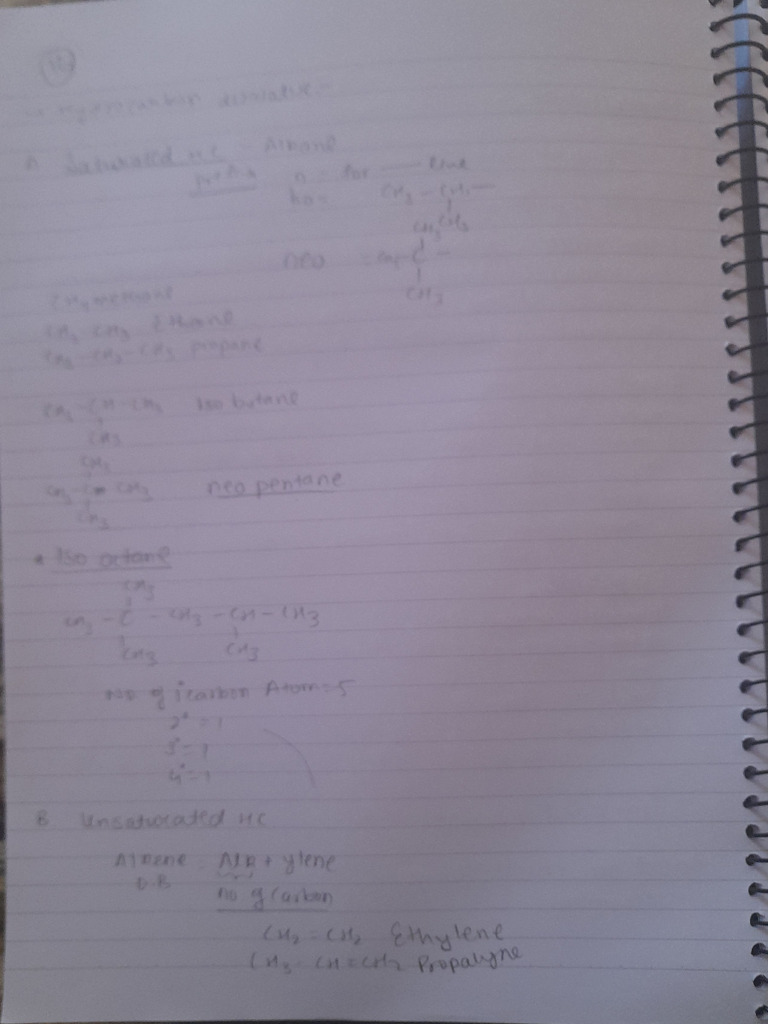 A Saturated HC - Alkane
prefix n = for — line
CH3 - CH -
CH3
CH3
neo = CH3 - C -
CH3
CH4 methane
CH3 - CH3 Ethane
CH3 - CH2 - CH3 propane
CH3 - CH - CH3 Iso butane
CH3
CH3
CH3 - C - CH3 neo pentane
CH3
* Iso octane
CH3
CH3 - C - CH3 - CH - CH3
CH3 CH3
No of 1° carbon Atom = 5
2° = 1
3° = 1
4° = 1
B Unsaturated HC
Alkene = Alk + ylene
D.B
no of carbon
CH2 = CH2 Ethylene
CH3 - CH = CH2 Propalyne